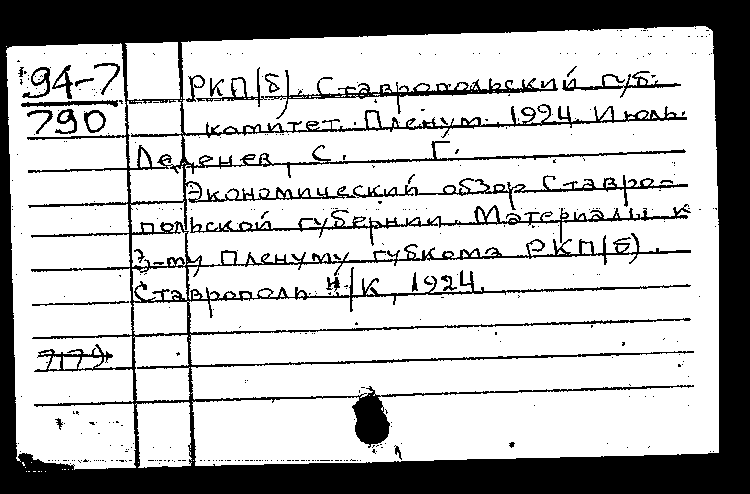 94-7
790
РКП(б). Ставропольский губ.
комитет. Пленум. 1924. Июль.
Леденев, С. Г.
Экономический обзор Ставро-
польской губернии. Материалы к
3-му Пленуму губкома РКП(б).
Ставрополь н/К, 1924.
7179